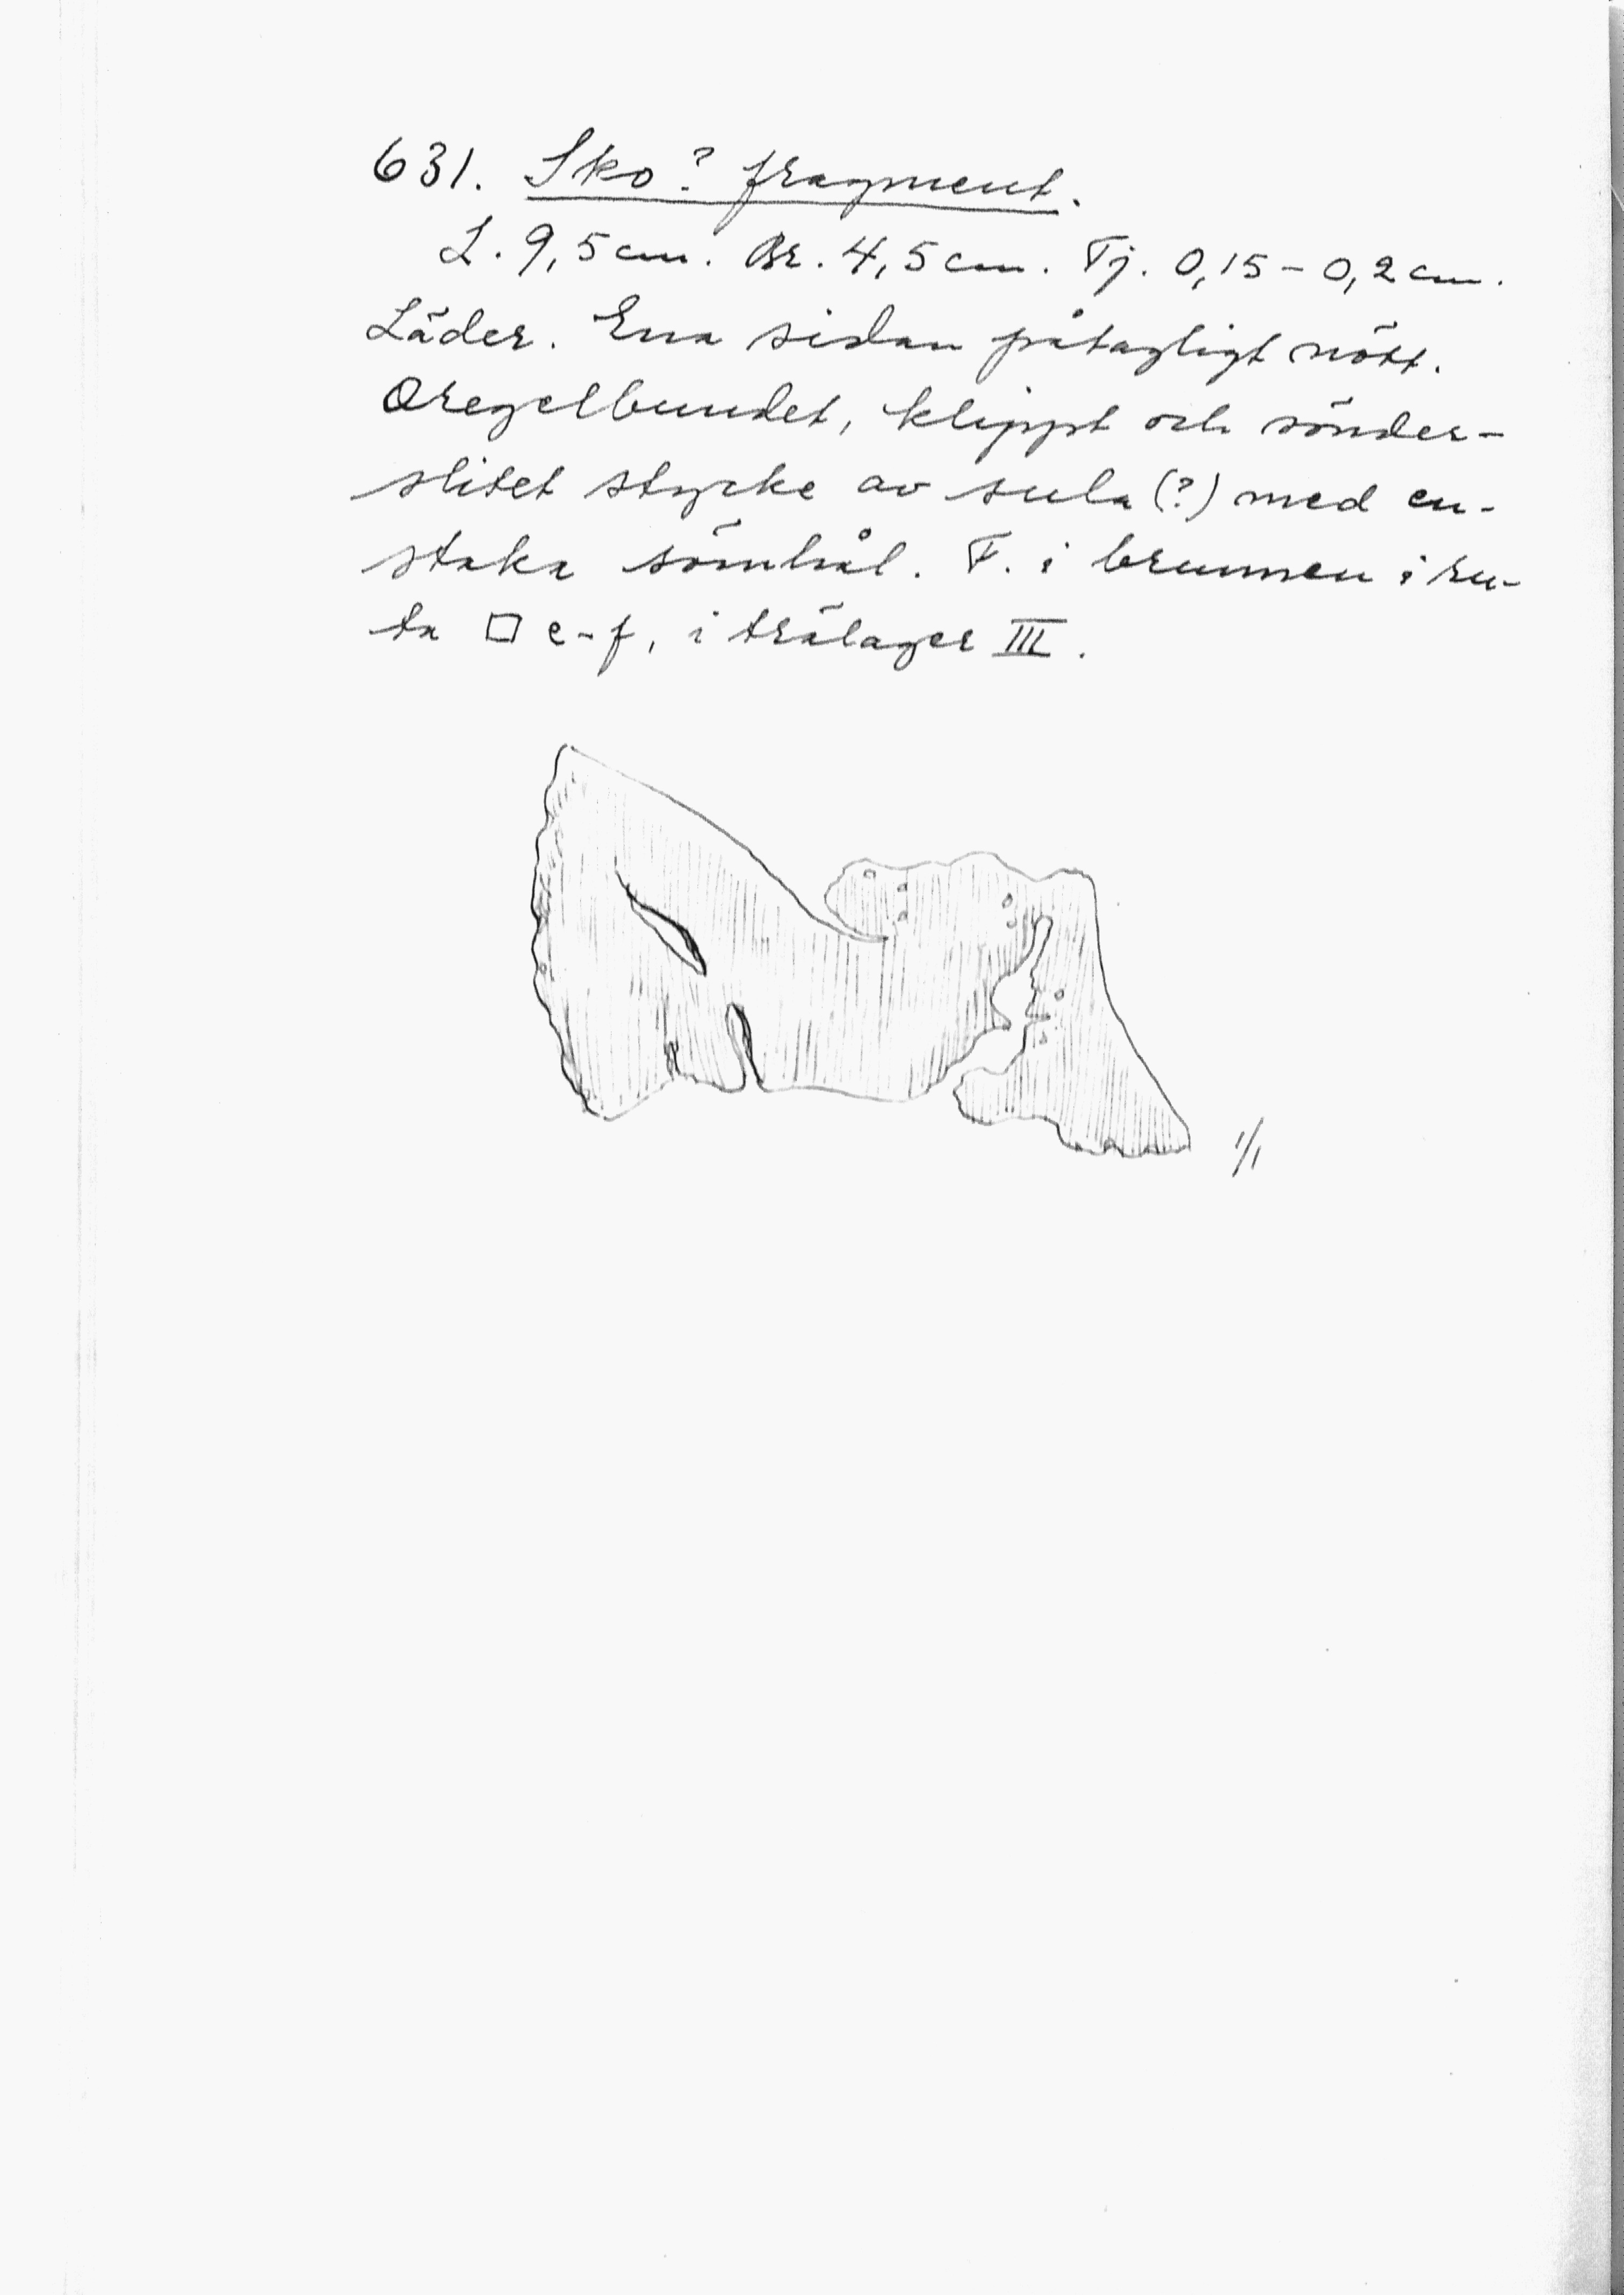 631. Sko? fragment.
L. 9,5 cm. Br. 4,5 cm. Tj. 0,15 - 0,2 cm.
Läder. Ena sidan påtagligt nött.
Oregelbundet, klippt och sönder-
slitet stycke av sula (?) med en-
staka sömhål. F. i brunnen i ru-
ta □ e-f, i trälager III.
1/1